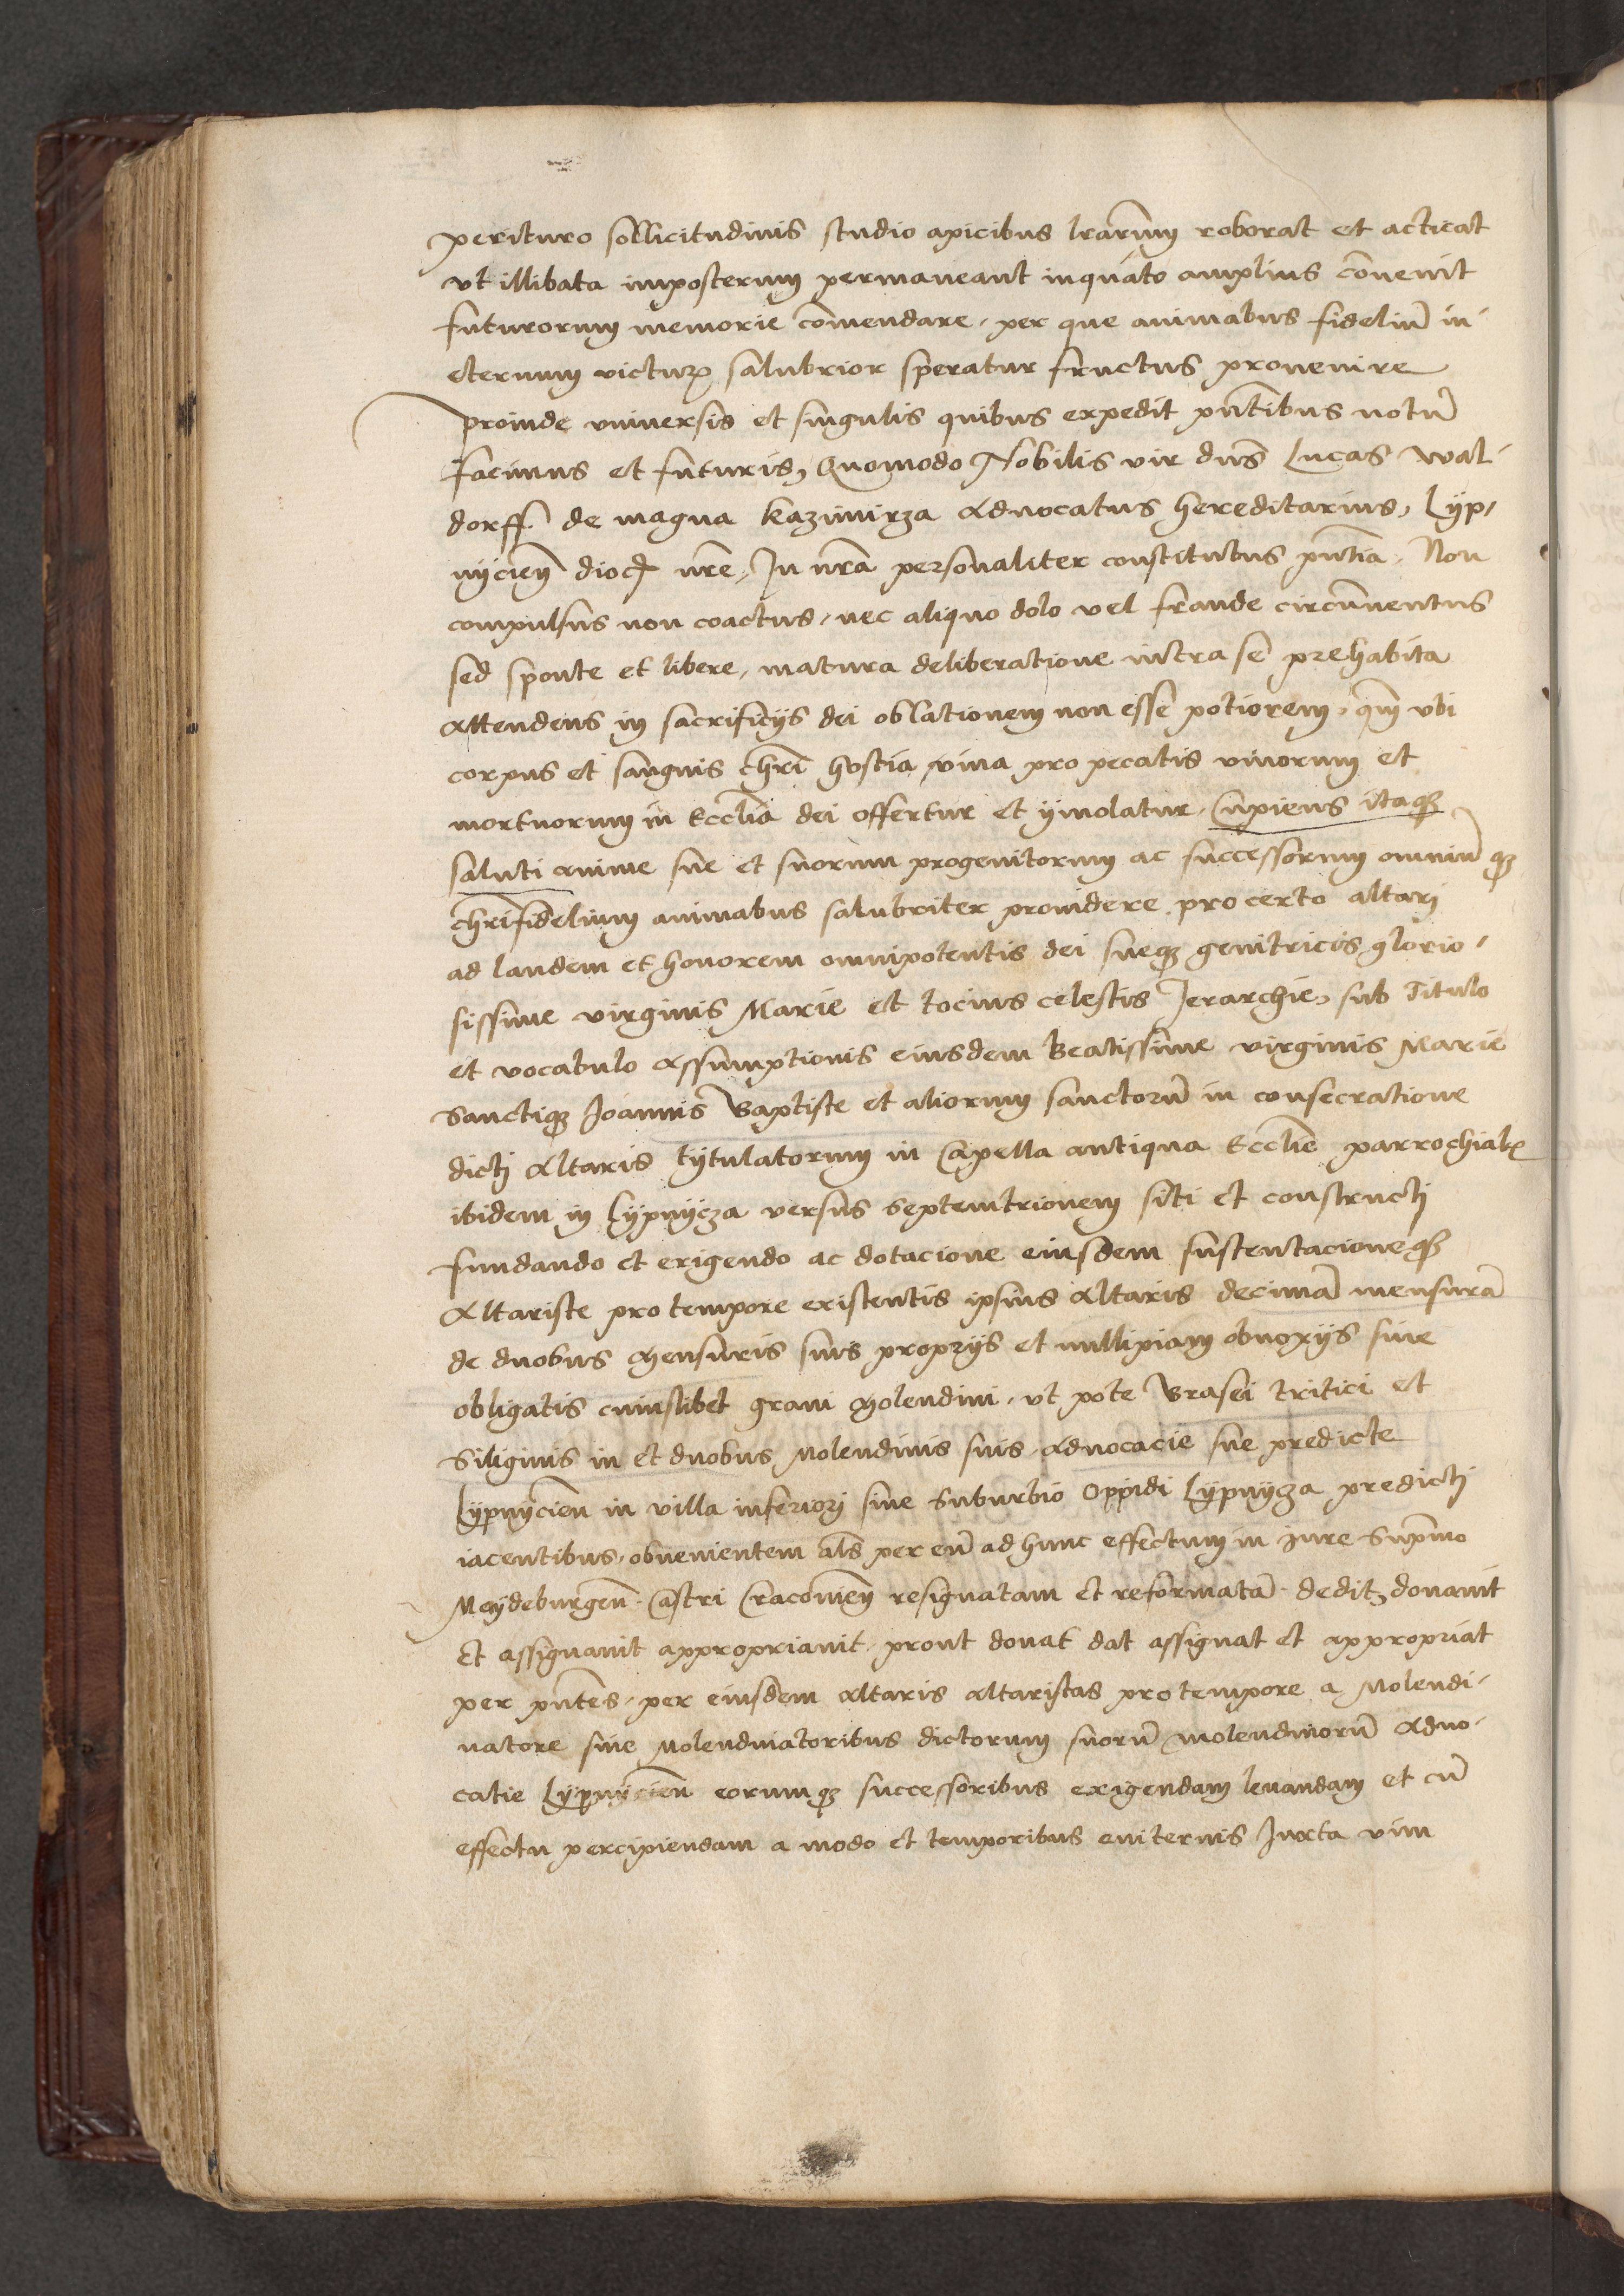 perituro sollicitudinis studio apicibus lr̃arum roborat et acticat
vt illibata imposterum permaneant inquãto amplius cõuenit
futurorum memorie cõmendare, per que animabus fideliũ in
eternum victuꝝ salubrior speratur fructus prouenire
proinde vniuersis et singulis quibus expedit pñtibus notũ
facimus et futuris, Quomodo Nobilis vir dñs Lucas Wal-
dorff de magna Kazimirza aduocatus hereditarius, Lyp-
nycieñ dioc̃ nr̃e, In nr̃a personaliter constitutus pñtia, Non
compulsus non coactus, nec aliquo dolo vel fraude circũuentus
sed sponte et libere, matura deliberatione intra se prehabita
attendens in sacrificijs dei oblationem non esse potiorem, qm̃ vbi
corpus et sanguis chr̃i hostia viua pro pecatis viuorum et
mortuorum in Eccl̃ia dei offertur et ymolatur, Cupiens itaqꝫ
saluti anime sue et suorum progenitorum ac successorum omniũqꝫ
chr̃ifidelium animabus salubriter prouidere pro certo altari
ad laudem et honorem omnipotentis dei sueqꝫ genitricis glorio-
sissime virginis Marie et tocius celestis Jerarchie, sub Titulo
et vocabulo Assumptionis eiusdem Beatissime virginis Marie
Sanctiqꝫ Joannis Baptiste et aliorum sanctorũ in consecratione
dicti Altaris tytulatorum in Capella antiqua Eccl̃ie parrochialꝭ
ibidem in Lypnycza versus Septemtrionem siti et constructi
fundando et erigendo ac dotacione eiusdem sustentacioneqꝫ
Altariste pro tempore existentis ipsius Altaris decimã mensurã
de duobus Mensuris suis proprijs et nullipiam obnoxijs siue
obligatis cuiuslibet grani Molendini, vt pote Brasei tritici et
Siliginis in et duobus Molendinis suis aduocacie sue predicte
Lypnycień in villa inferiori siue Suburbio Oppidi Lypnycza predicti
iacentibus, obuenientem als̃ per eũ ad hunc effectum in Jure Supr̃mo
Meydeburgeñ Castri Cracouieñ resignatam et reformatã dedit, donauit
Et assignauit appropriauit, prout donat dat assignat et appropriat
per pñtes, per eiusdem Altaris Altaristas pro tempore a Molendi-
natore siue Molendinatoribus dictorum suorũ molendinorũ Aduo-
catie Lypnycieñ eorumqꝫ successoribus exigendam leuandam et cũ
effectu percipiendam a modo et temporibus euiternis Juxta vim